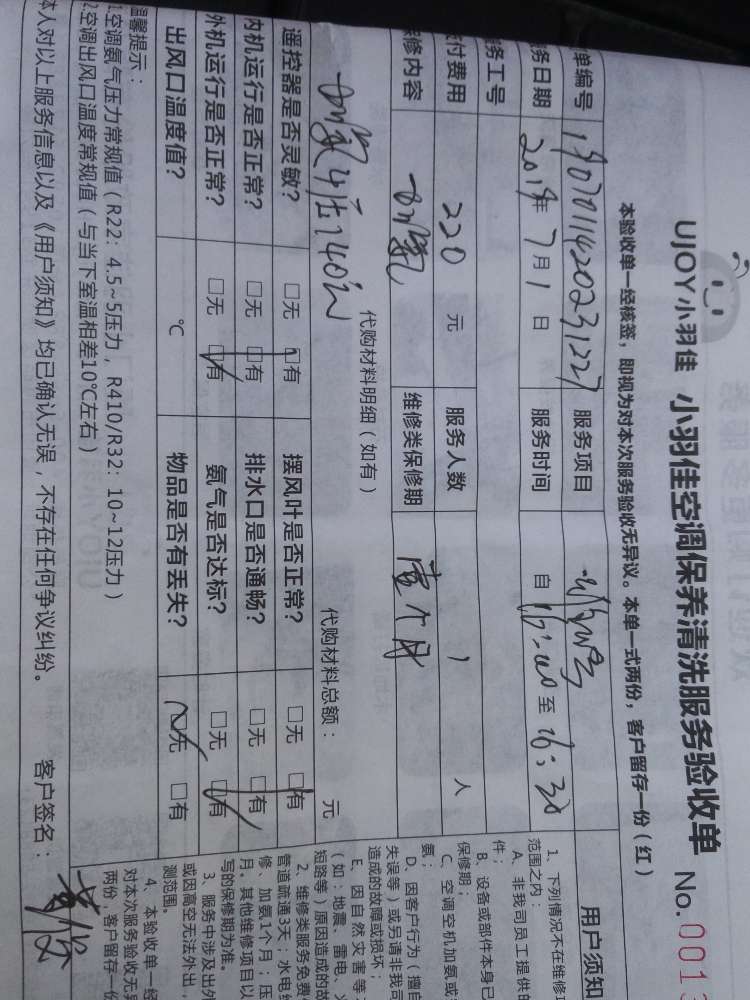 UJOY小羽佳 小羽佳空调保养清洗服务验收单 No.001
本验收单一经核签，即视为对本次服务验收无异议。本单一式两份，客户留存一份（红）
单编号 服务项目
务日期 2019年7月1日 服务时间 自16:00至16:30
务工号
付费用 220元 服务人数 1人
保修内容 加氨 维修类保修期 壹个月
代购材料明细（如有） 代购材料总额： 元
遥控器是否灵敏？ □无 □有 摆风叶是否正常？ □无 □有
内机运行是否正常？ □无 □有 排水口是否通畅？ □无 □有
外机运行是否正常？ □无 □有 氨气是否达标？ □无 □有
出风口温度值？ ℃ 物品是否有丢失？ □无 □有
温馨提示：
1.空调氨气压力常规值（R22：4.5~5压力，R410/R32：10~12压力）
2.空调出风口温度常规值（与当下室温相差10℃左右）
本人对以上服务信息以及《用户须知》均已确认无误，不存在任何争议纠纷。 客户签名：
用户须知
1、下列情况不在维修
范围之内：
A、非我司员工提供的
件；
B、设备或部件本身已
保修期；
C、空调空机加氨或
氨；
D、因客户行为（擅自
失误等）或另请非我司
造成的故障或损坏；
E、因自然灾害等
（如：地震、雷电、
短路等）原因造成的故
2、维修类服务免费
管道疏通3天；水电维
修、加氨1个月；压
月。其他维修项目以
写的保修期为准。
3、服务中涉及出外
或因高空无法外出，
测范围。
4、本验收单一经
对本次服务验收无异
两份，客户留存一份